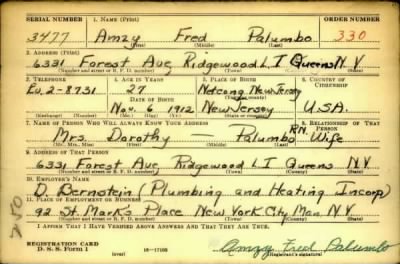 SERIAL NUMBER 1. NAME (Print) ORDER NUMBER
3477 Amzy Fred Palumbo 330
(First) (Middle) (Last)
2. ADDRESS (Print)
6331 Forest Ave Ridgewood L I Queens N.Y
(Number and street or R. F. D. number) (Town) (County) (State)
3. TELEPHONE 4. AGE IN YEARS 5. PLACE OF BIRTH 6. COUNTRY OF CITIZENSHIP
27 Netcong New Jersey
(Town or county)
DATE OF BIRTH
Ev. 2-8751 Nov. 6 1912 New Jersey U.S.A.
(Exchange) (Number) (Mo.) (Day) (Yr.) (State or country)
7. NAME OF PERSON WHO WILL ALWAYS KNOW YOUR ADDRESS 8. RELATIONSHIP OF THAT PERSON
Mrs. Dorothy — Palumbo R.N. Wife
(Mr., Mrs., Miss) (First) (Middle) (Last)
9. ADDRESS OF THAT PERSON
6331 Forest Ave Ridgewood L I Queens N.Y
(Number and street or R. F. D. number) (Town) (County) (State)
10. EMPLOYER'S NAME
D. Bernstein (Plumbing and Heating Incorp)
11. PLACE OF EMPLOYMENT OR BUSINESS
92 St. Mark's Place New York City Man. N.Y
(Number and street or R. F. D. number) (Town) (County) (State)
I AFFIRM THAT I HAVE VERIFIED ABOVE ANSWERS AND THAT THEY ARE TRUE.
REGISTRATION CARD
D. S. S. Form 1 16-17105 Amzy Fred Palumbo
(over) (Registrant's signature)